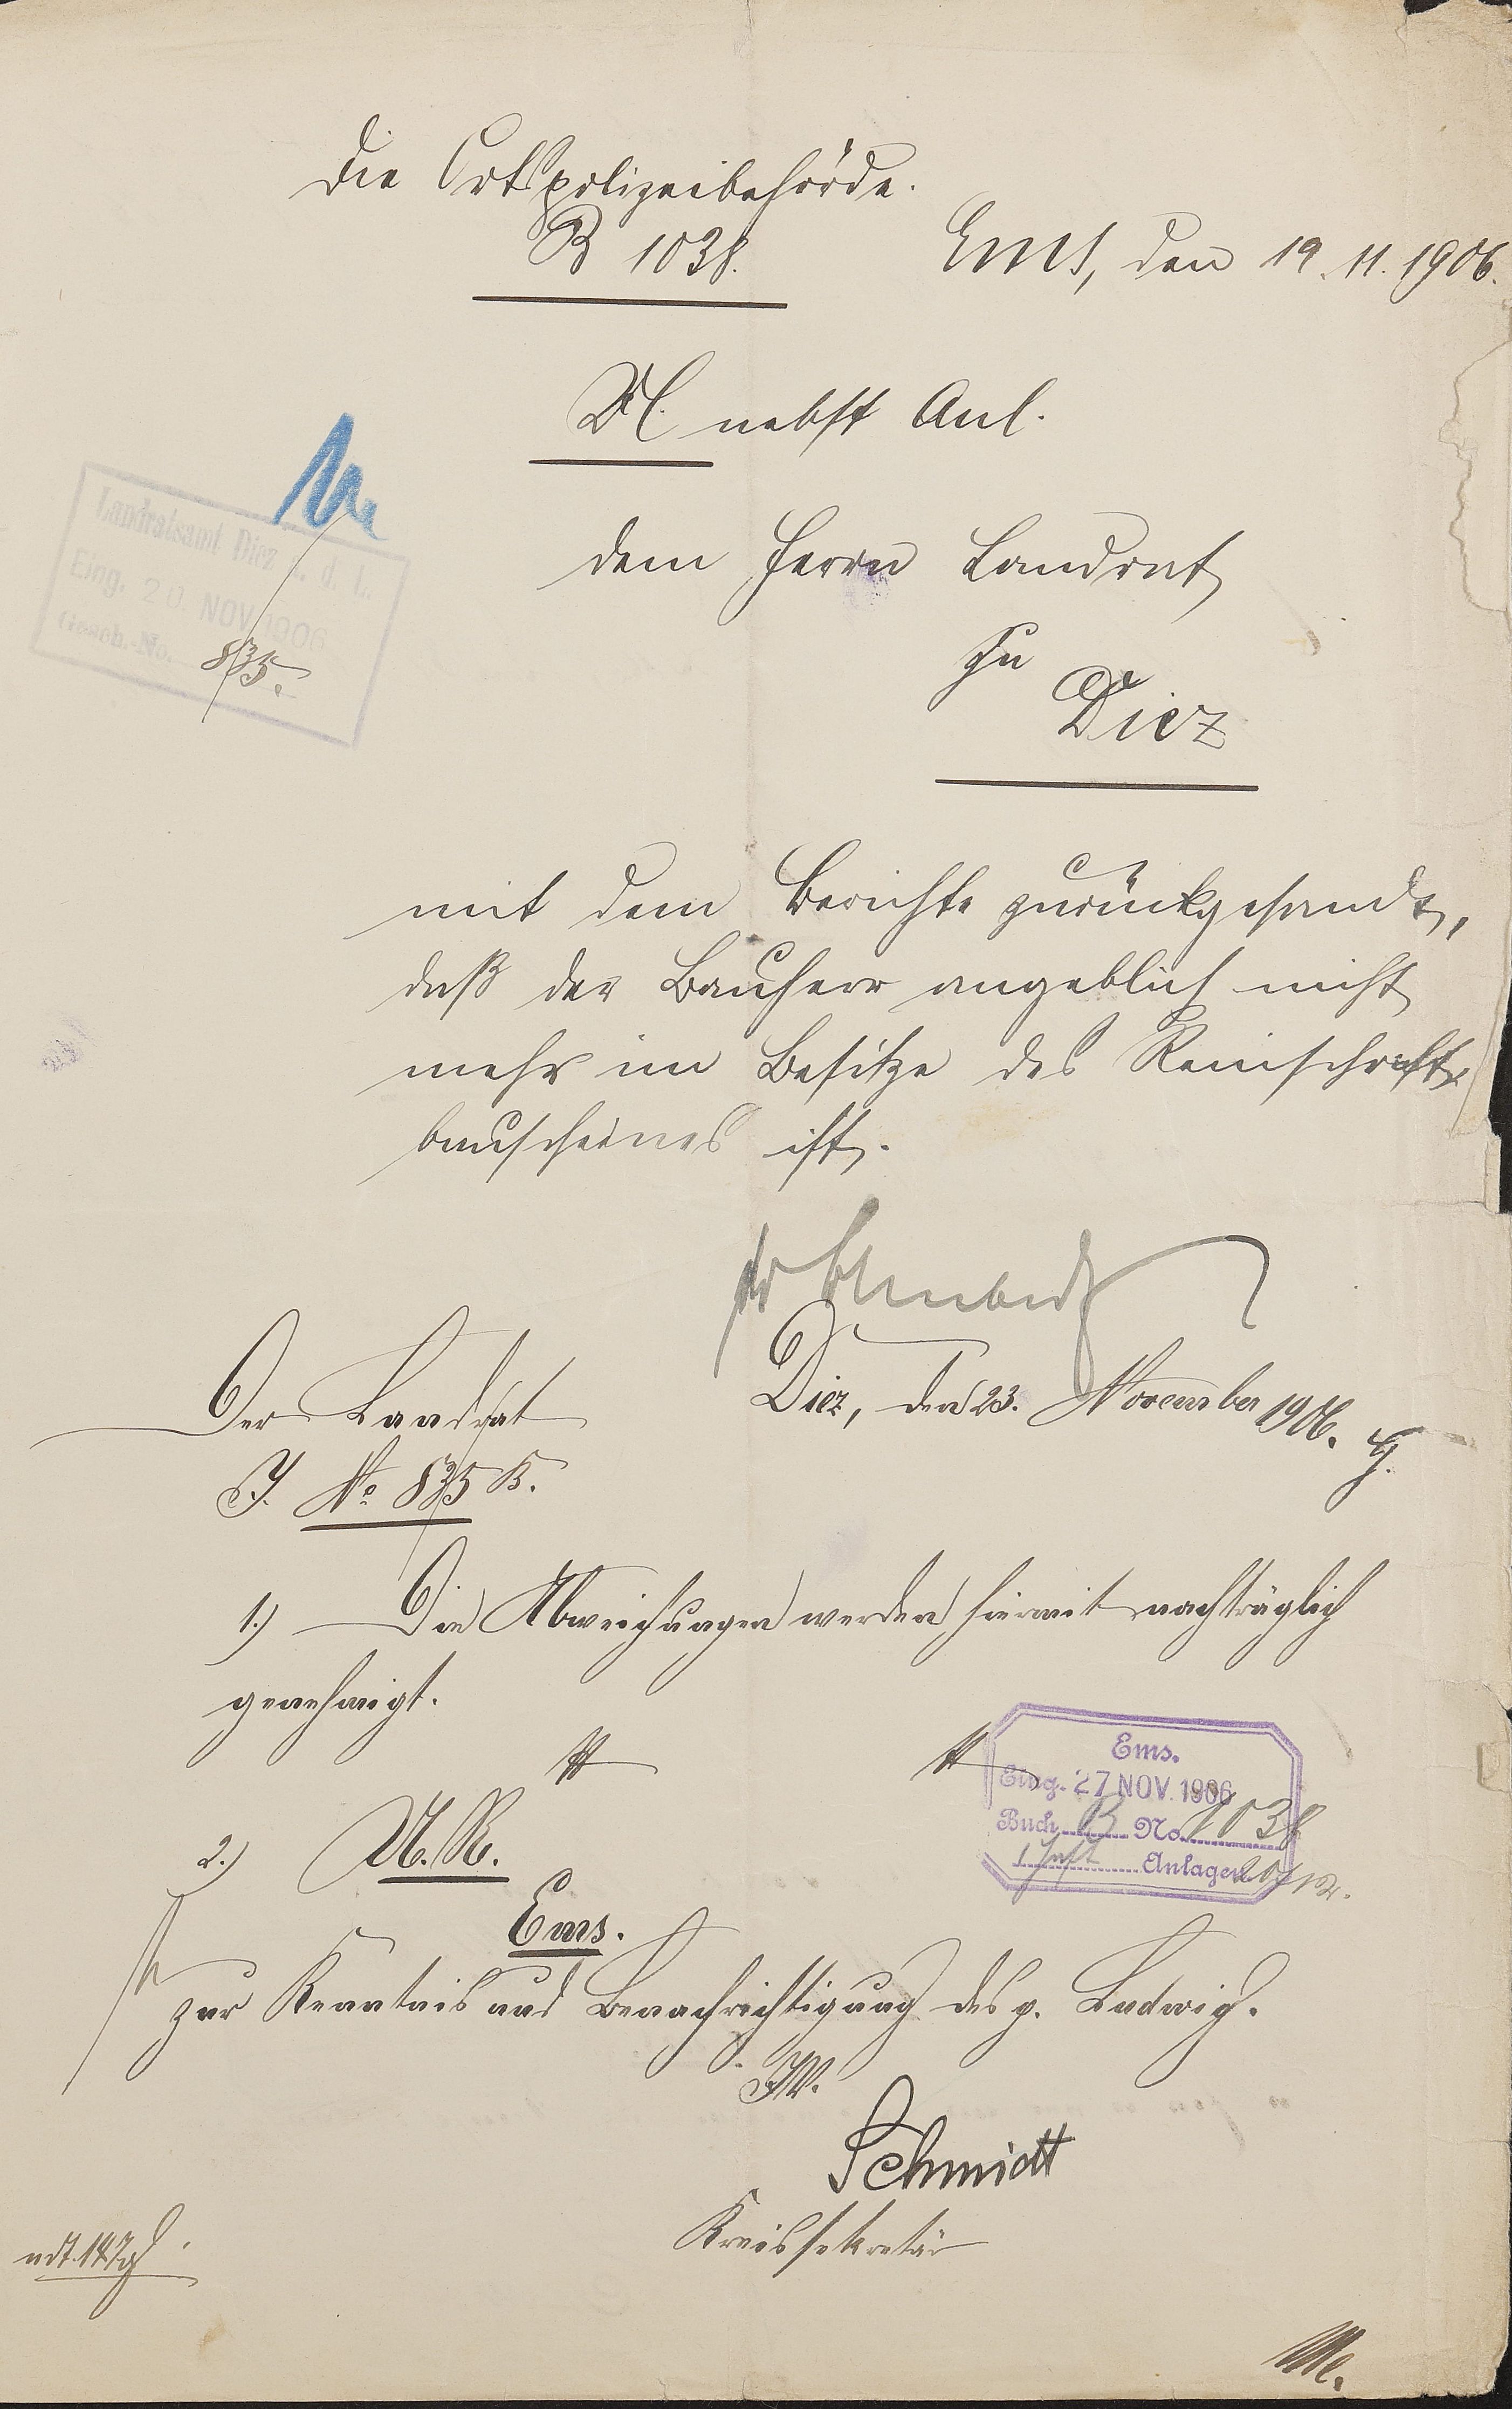 Die Ortspolizeibehörde.
B 1038.
Ems, den 19.11.1906.
U. nebst Anl.
dem Herrn Landrat
zu
Diez
Landratsamt Diez a. d. L.
Eing. NOV 1906
Gesch.-No. 835.
mit dem Berichte zurückgesandt,
daß der Bauherr angeblich nicht
mehr im Besitze des
bauscheines ist.
Der Landrat
Diez, den 23. November 1906.
J. No 835 K.
1.) Die Abweichungen werden hiermit nachträglich
genehmigt.
Ems.
Eing. 27 NOV. 1906
Buch B No. 1038
1 Heft Anlagen
2.) U. R.
Ems.
zur Kenntnis und Benachrichtigung des p. Ludwig.
I.V.
Schmidt
Kreissekretär